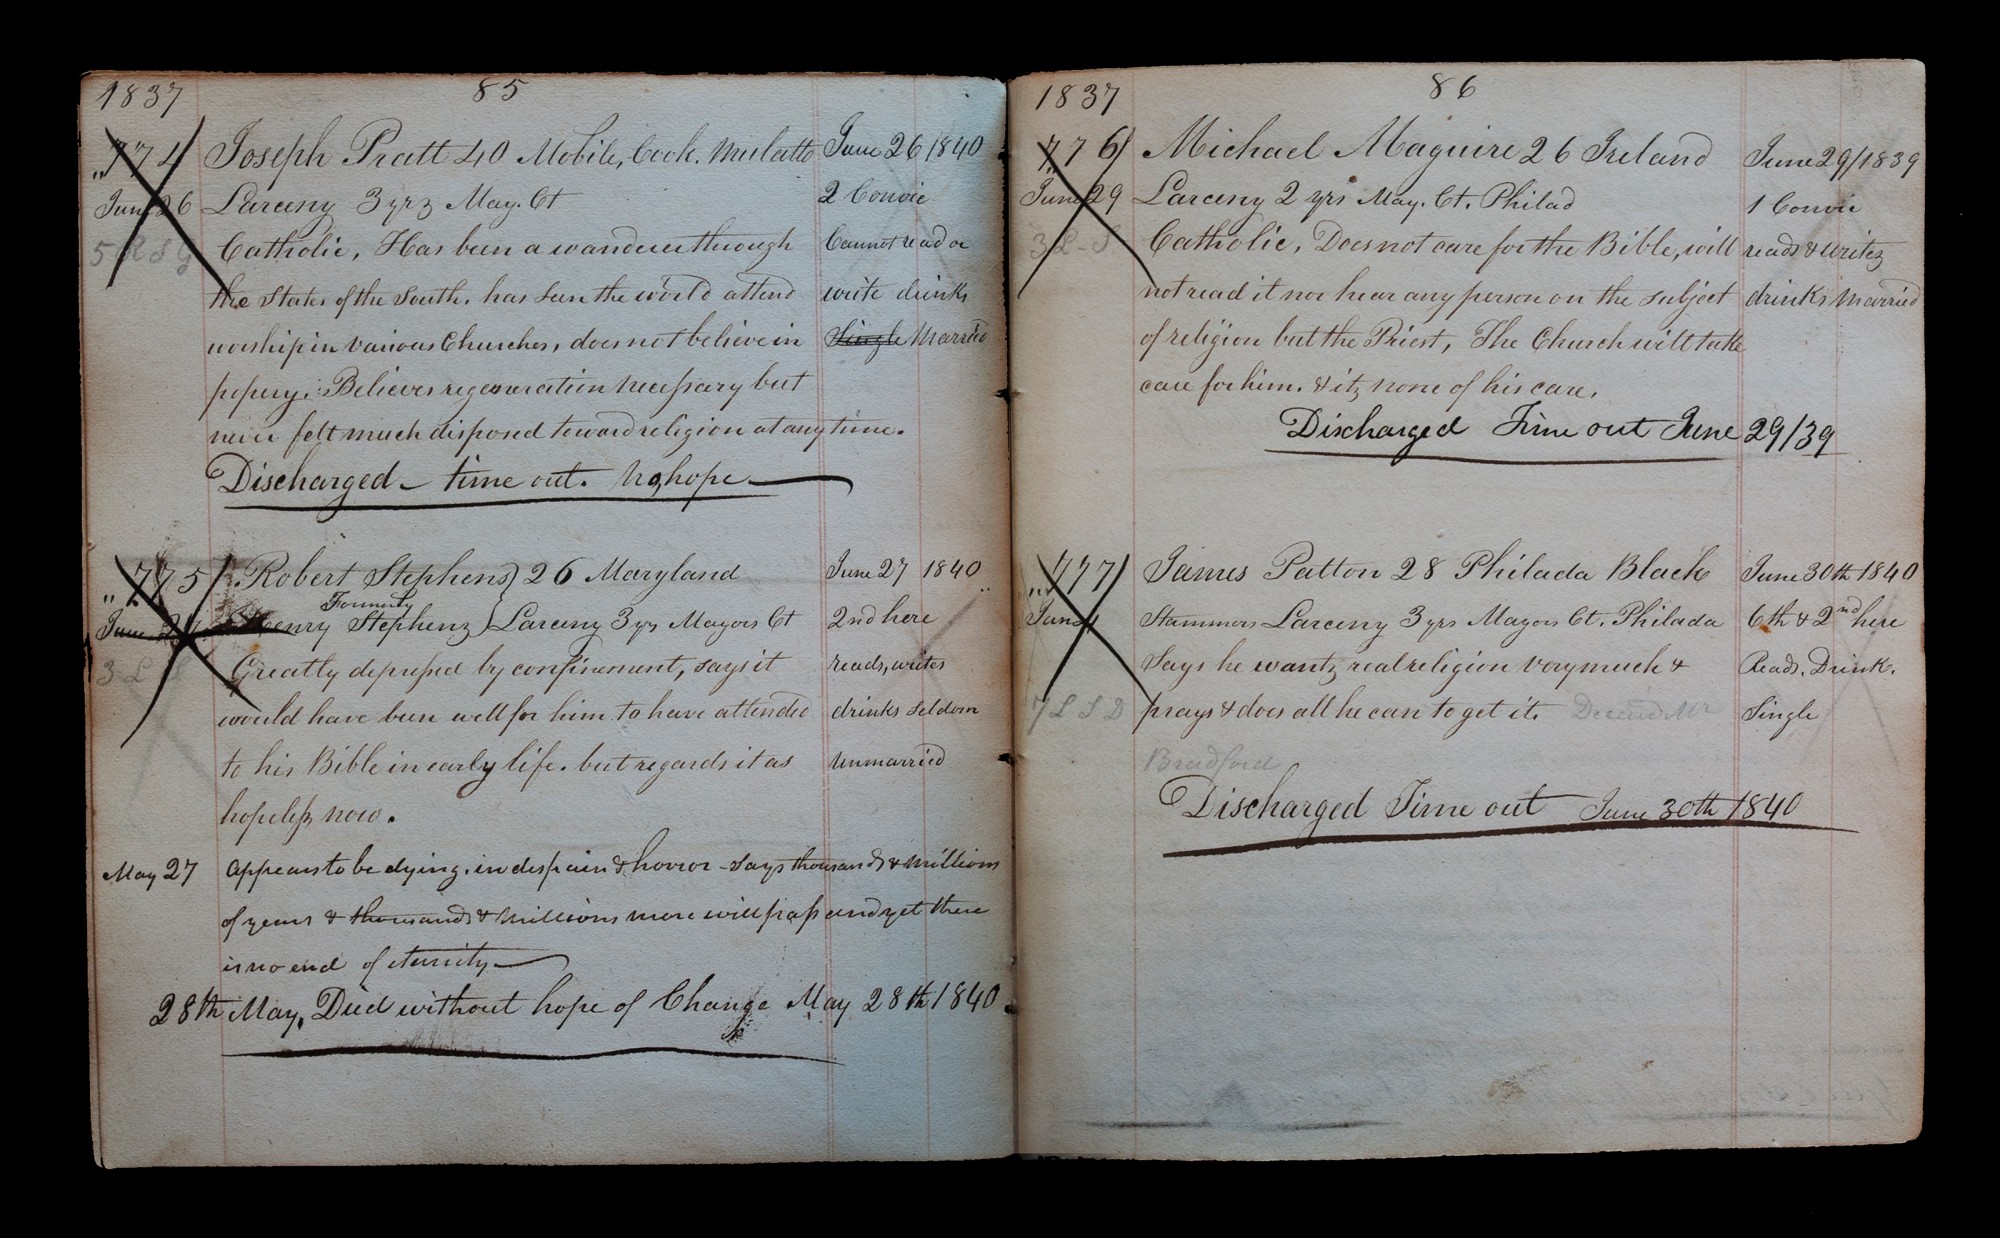 1837
85
774 Joseph Pratt 40 Mobile, Cook. Mulatto June 26 1840
June 26 Larceny 3 yrs May. Ct 2 Convic
5 R S G Catholic, Has been a wanderer through Cannot read or
the States of the South. has seen the world attend write drinks
worship in various Churches, does not believe in Single Married
popery. Believes regeneration necessary but
never felt much disposed toward religion at any time.
Discharged – time out. No hope
775 Robert Stephens 26 Maryland June 27 1840
Formerly
June Henry Stephens Larceny 3 yrs Mayors Ct 2nd here
3 L S Greatly depressed by confinement, says it reads, writes
would have been well for him to have attended drinks seldom
to his Bible in early life. but regards it as unmarried
hopeless now.
May 27 appears to be dying. in despair & horror – says thousands & millions
of years & thousands & millions more will pass and yet there
is no end of eternity
28th May, Died without hope of Change May 28th 1840
1837
86
776 Michael Maguire 26 Ireland June 29/1839
June 29 Larceny 2 yrs May. Ct. Philad 1 Convic
3 L – S Catholic. Does not care for the Bible, will reads & writes
not read it nor hear any person on the subject drinks Married
of religion but the Priest, The Church will take
care for him. & its none of his care.
Discharged Time out June 29/39
777 James Patton 28 Philada Black June 30th 1840
June Stammers Larceny 3 yrs Mayors Ct. Philada 6th & 2nd here
Says he wants real religion very much & Reads. Drink.
7 L S D prays & does all he can to get it. Single
Bradford
Discharged Time out June 30th 1840